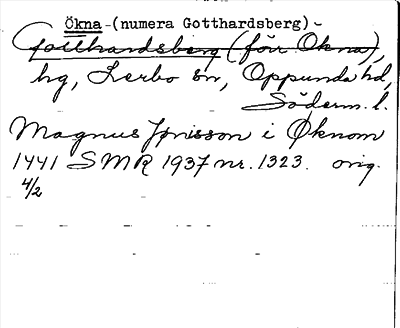 Ökna (numera Gotthardsberg)
Gotthardsberg (förr Ökna),
hg, Lerbo sn, Oppunda hd,
Söderm. l.
Magnus Jønisson i Øknom
1441 SMR 1937 nr. 1323. orig.
4/2